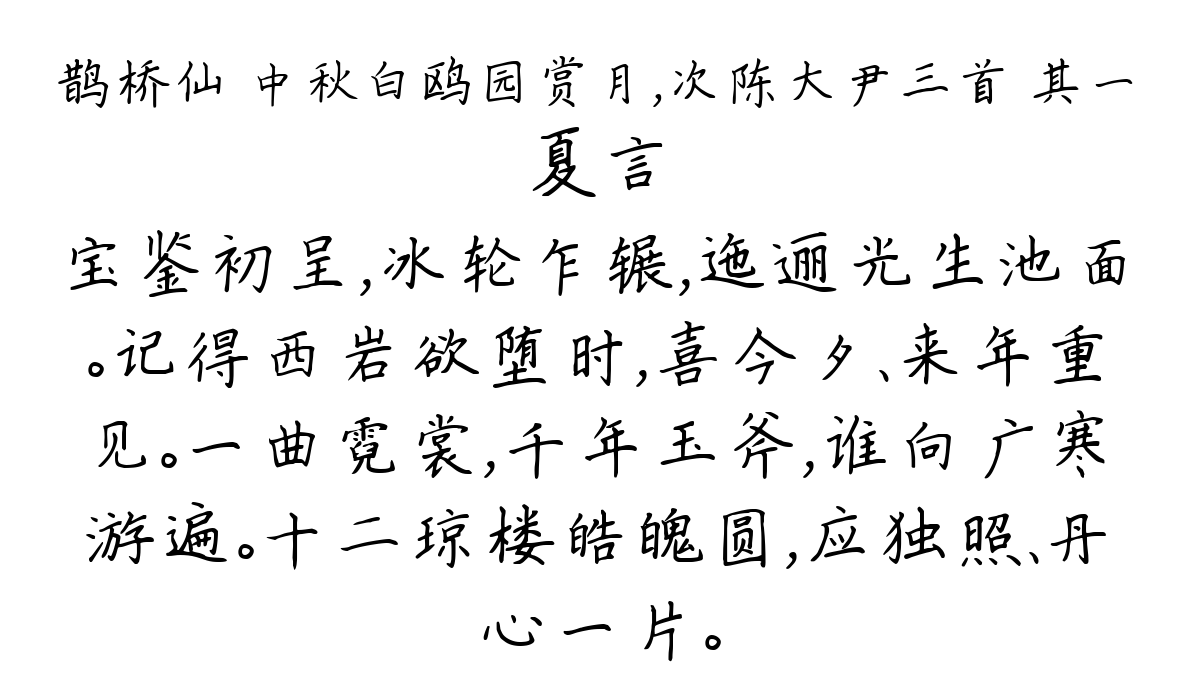 鹊桥仙 中秋白鸥园赏月,次陈大尹三首 其一
夏言
宝鉴初呈,冰轮乍辗,迤逦光生池面
。记得西岩欲堕时,喜今夕、来年重
见。一曲霓裳,千年玉斧,谁向广寒
游遍。十二琼楼皓魄圆,应独照、丹
心一片。